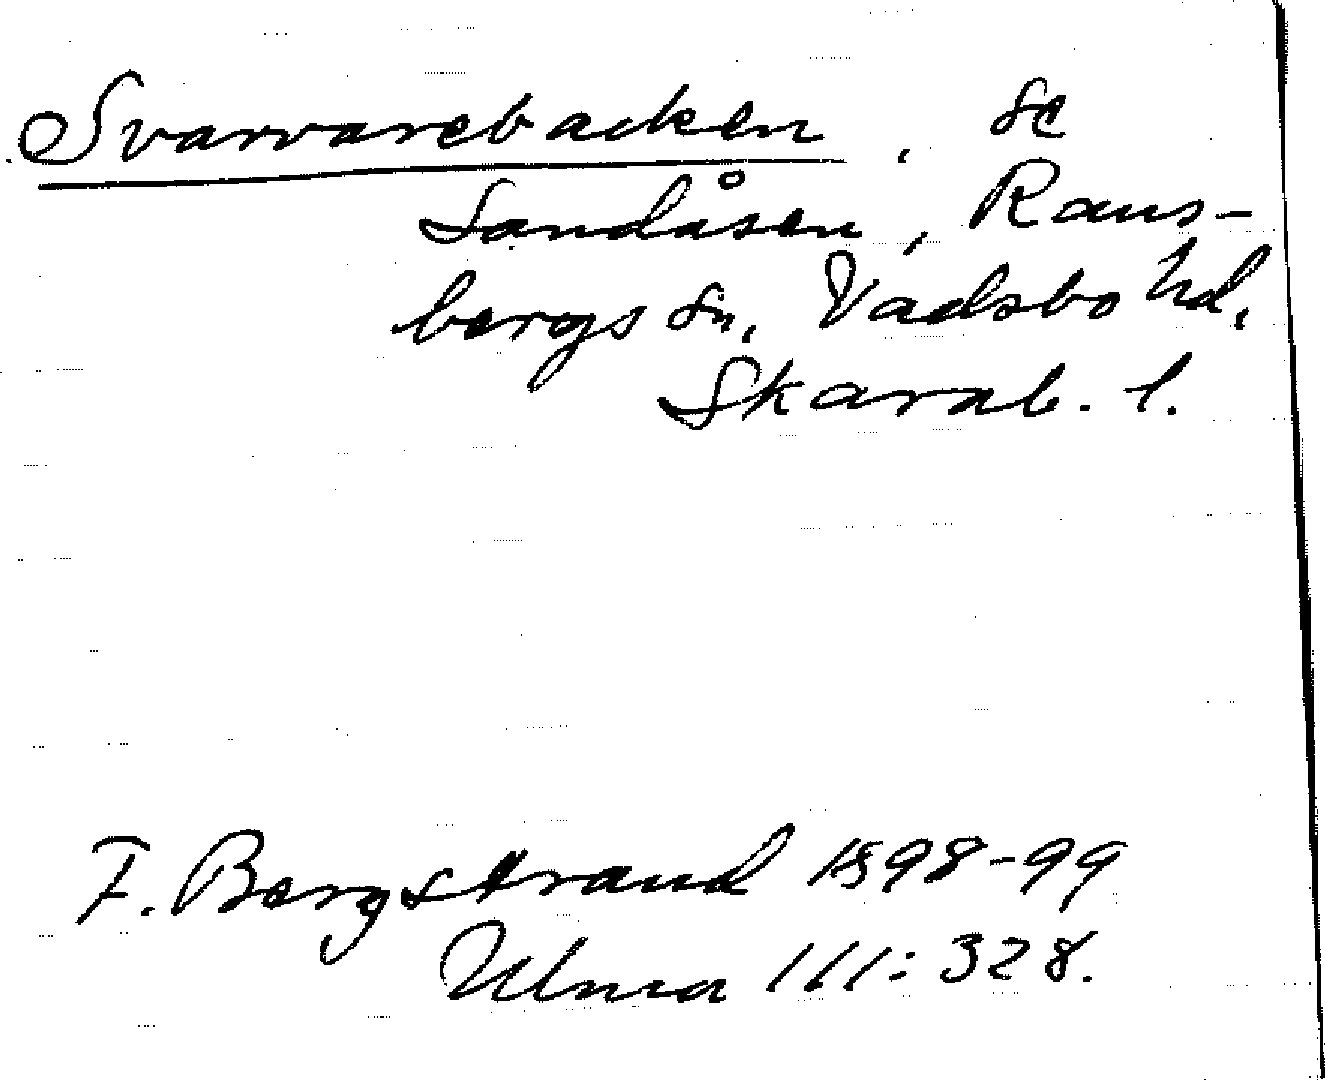 Svarvarebacken, se
Sandåsen, Rans-
bergs sn, Vadsbo hd,
Skarab. l.
F. Bergstrand 1898-99
Ulma 111:328.